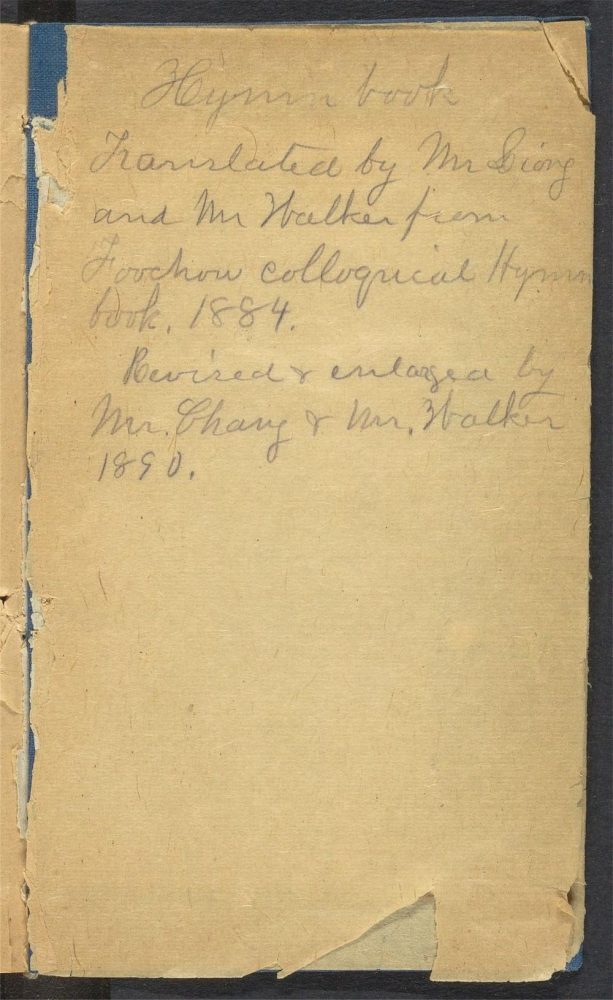 Hymn book
Translated by Mr Diong
and Mr Walker from
Foochow colloquical Hymn
book. 1884.
Revised & enlarged by
Mr. Chang & Mr. Walker
1890.